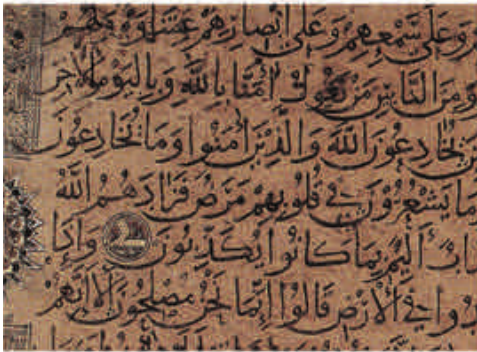 هم وعلى سمعهم وعلى أبصارهم غشاوة ولهم
ومن الناس من يقول امنا بالله وباليوم الاخر
ين يخادعون الله والذين امنوا وما يخادعون
وما يشعرون في قلوبهم مرض فزادهم الله
اب أليم بما كانوا يكذبون وإذا
دوا في الأرض قالوا إنما نحن مصلحون ألا إنهم